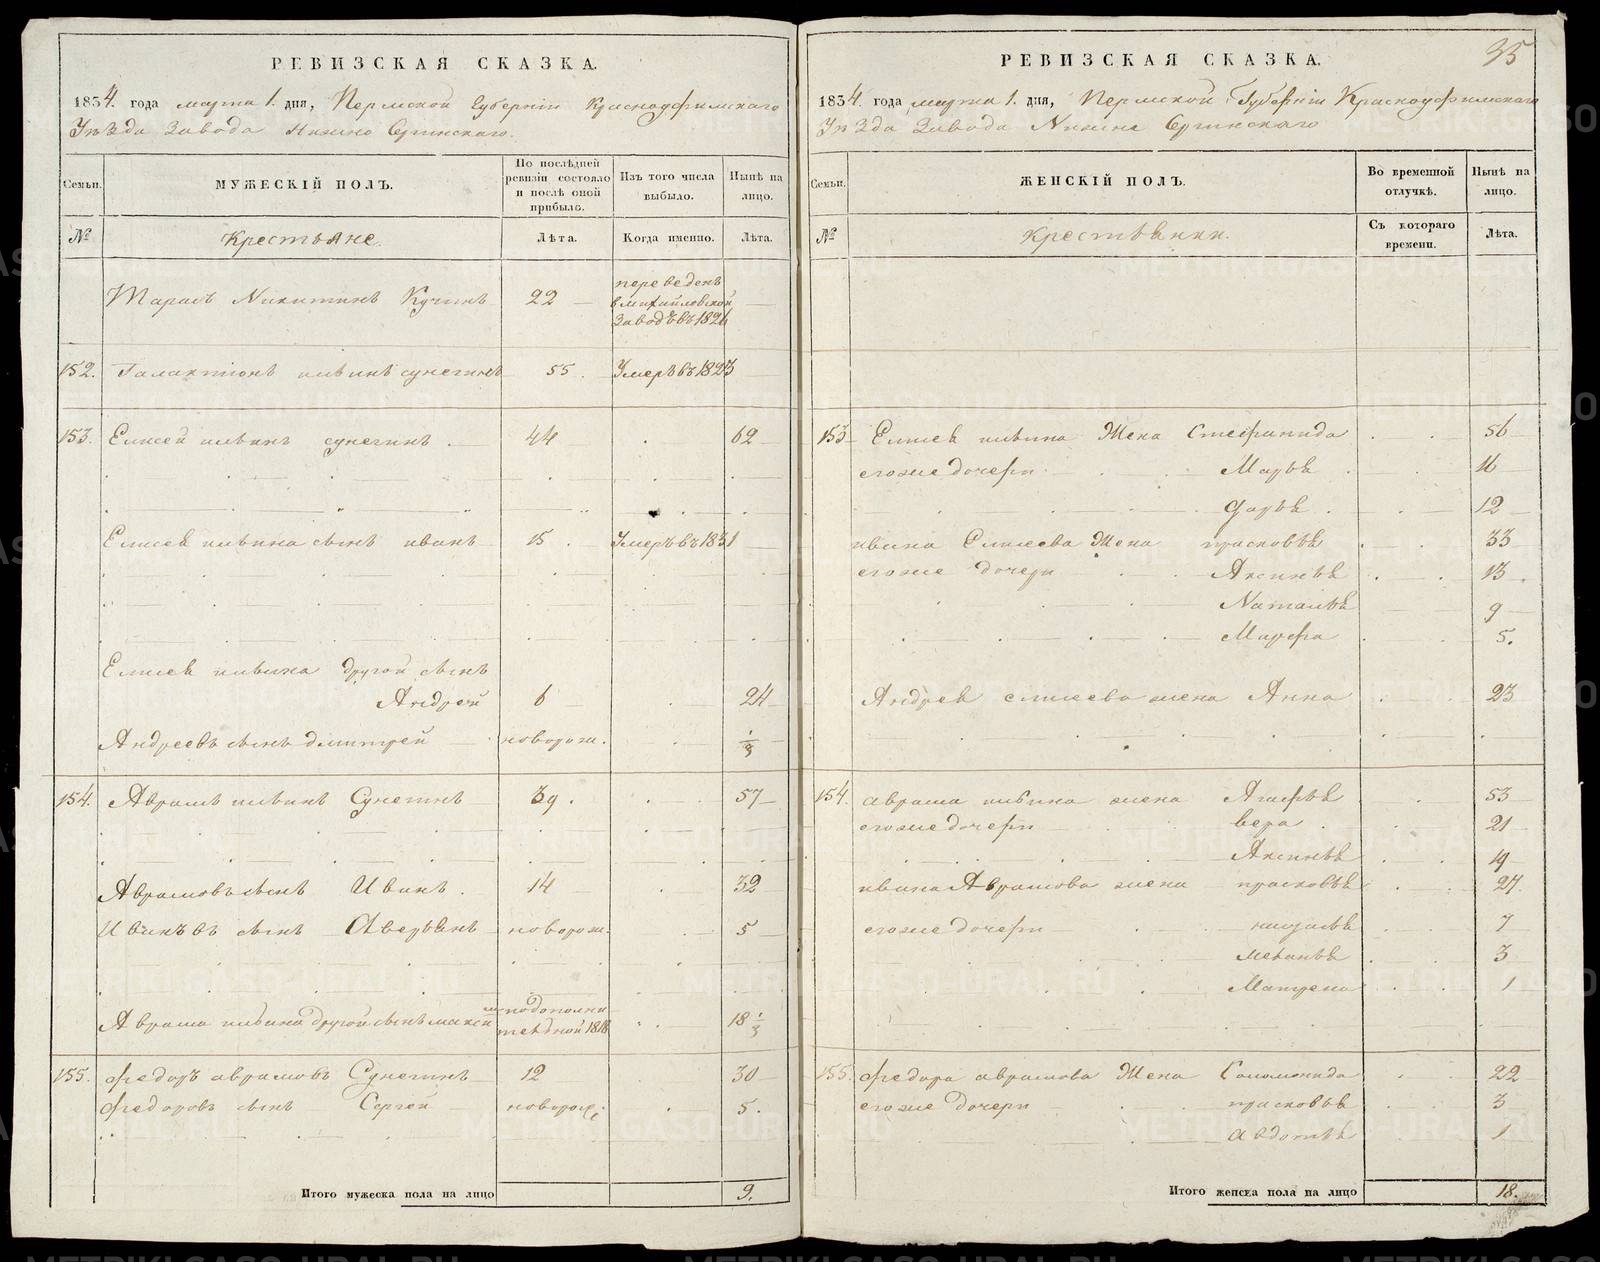 РЕВИЗСКАЯ СКАЗКА.
1834. года марта 1. дня, Пермской Губернiи Красноуфимскаго
Уѣзда Завода Нижно Сергинскаго.
Семьи.
МУЖЕСКIЙ ПОЛЪ.
По послѣдней ревизiи состояло и послѣ оной прибыло.
Изъ того числа выбыло.
Нынѣ на лицо.
№
Крестьяне.
Лѣта.
Когда именно.
Лѣта.
Тарасъ Никитинъ Кучинъ 22 переведенъ в михайловской Заводъ въ 1826
152. Галактiонъ ильинъ сунегинъ 55. Умеръ въ 1823
153. Елисей ильинъ сунегинъ. 44 62
Елисея ильина сынъ иванъ 15. Умеръ въ 1831
Елисея ильина другой сынъ
Андрей 6 24
Андреевъ сынъ дмитрей новорож. 1/3
154. Аврамъ ильинъ Сунегинъ 39. 57
Аврамовъ сынъ Иванъ. 14 32
Ивановъ сынъ Аверьянъ новорож. 5
Аврама ильина другой сынъ максимъ подополнительной 1818 18 1/3
155. Федоръ аврамовъ Сунегинъ 12 30
Федоровъ сынъ Сергей новорож. 5.
Итого мужеска пола на лицо 9.
35
РЕВИЗСКАЯ СКАЗКА.
1834. года марта 1. дня, Пермской Губернiи Красноуфимскаго
Уѣзда Завода Нижно Сергинскаго
Семьи.
ЖЕНСКIЙ ПОЛЪ.
Во временной отлучкѣ.
Нынѣ на лицо.
№
Крестьянки.
Съ котораго времени.
Лѣта.
153 Елисея ильина Жена Стефанида 56
егоже дочери Марья 16
Дарья 12
ивана Елисеева Жена прасковья 33
егоже дочери Аксинья 13.
Наталья 9
Марфа 5.
Андрея елисеева жена Анна 23
154. аврама ильина жена Агафья 53
егоже дочери вера 21
Аксинья 19
ивана Аврамова жена прасковья 27.
егоже дочери 7
меланья 3
Матрена 1
155. Федора аврамова Жена Соломонида 22
егоже дочери прасковья 3
авдотья 1
Итого женска пола на лицо 18.
METRIKI.GASO-URAL.RU